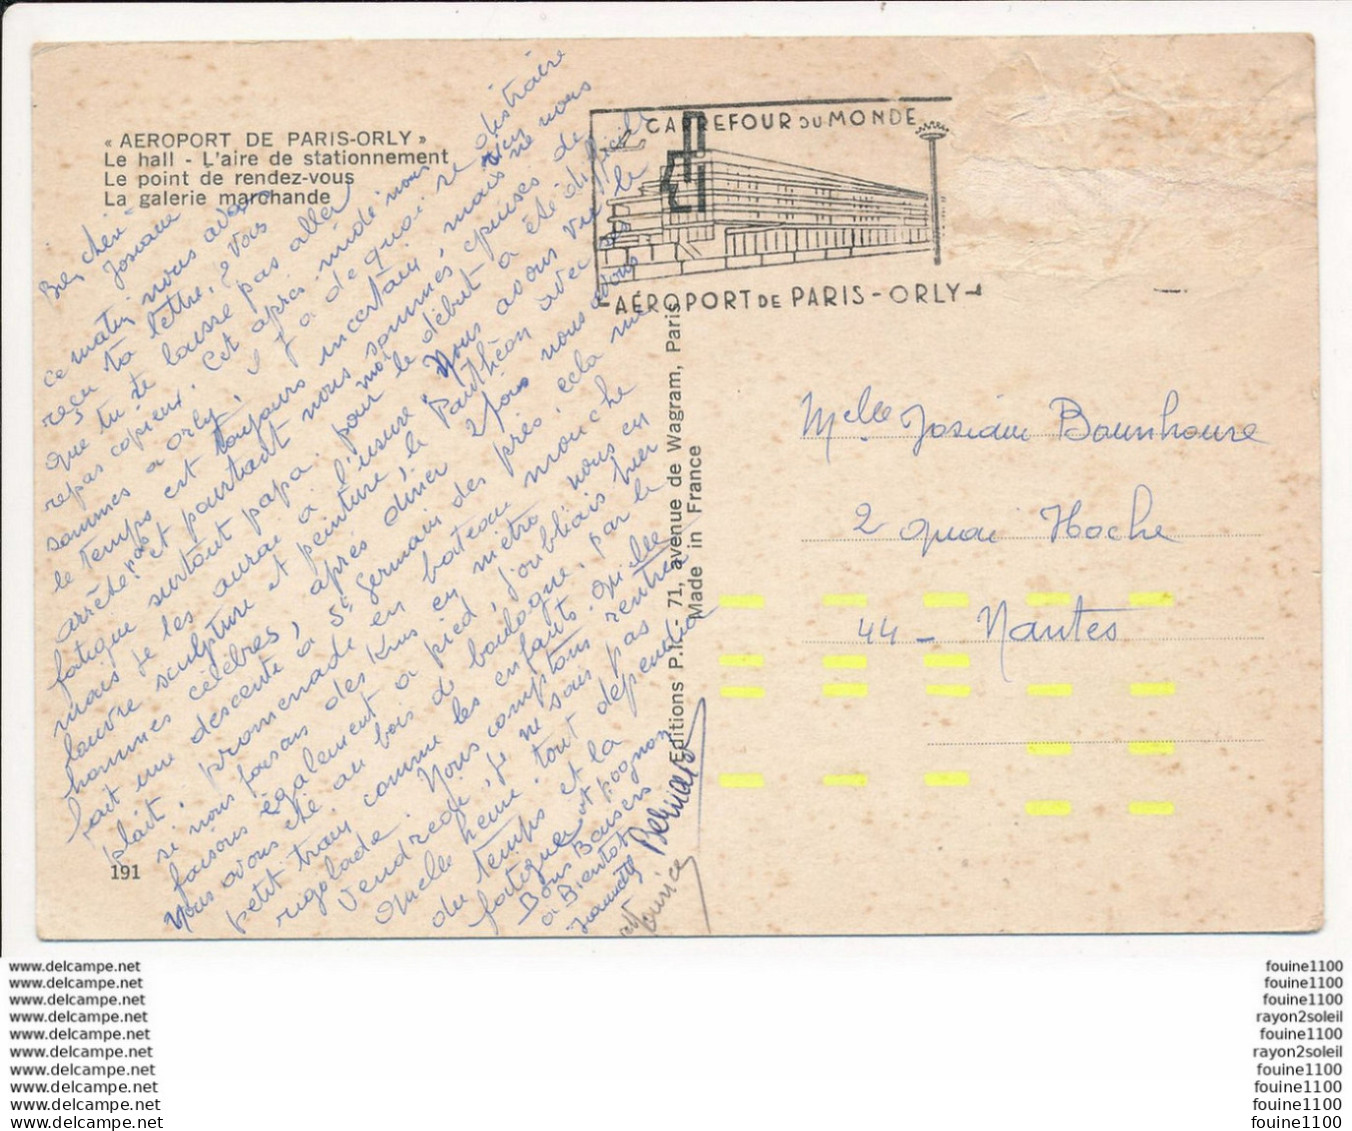 « AEROPORT DE PARIS-ORLY »
Le hall - L'aire de stationnement
Le point de rendez-vous
La galerie marchande
Bien chère
Josiane
ce matin nous avons
reçu ta lettre, vois
que tu te laisse pas aller
repas copieux. Cet après midi nous
sommes a orly, il y a de quoi se distraire
le temps est toujours incertain, mais ne nous
arrête pas et pourtant nous sommes épuisés de
fatigue surtout papa. pour moi le début a été difficile
mais je les aurai a l'usure. Nous avons vu le
louvre sculpture et peinture, le Panthéon avec ses
hommes célèbres, après diner 2 fois nous avons
fait une descente a St Germain des près, cela me
plait, promenade en bateau mouche
si nous faisons des Kms en métro nous en
faisons également a pied, j'oubliais hier
Nous avons été au bois de boulogne, par le
petit train comme les enfants. quelle
rigolade. Nous comptons rentrer
Vendredi, je ne sais pas
quelle heure. tout dépendra
du temps et la
fatigue et pognon
Bons Baisers
a Bientot
Bernard
Maurice
191
CARREFOUR DU MONDE
AÉROPORT DE PARIS - ORLY
Editions P.I. - 71, avenue de Wagram, Paris
Made in France
Melle Josiane Bounhoure
2 quai Hoche
44 - Nantes
www.delcampe.net
www.delcampe.net
www.delcampe.net
www.delcampe.net
www.delcampe.net
www.delcampe.net
www.delcampe.net
www.delcampe.net
www.delcampe.net
www.delcampe.net
fouine1100
fouine1100
fouine1100
rayon2soleil
fouine1100
rayon2soleil
fouine1100
fouine1100
fouine1100
fouine1100